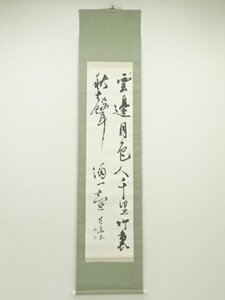 雲邊月色人千里竹裏
秋聲酒一壺